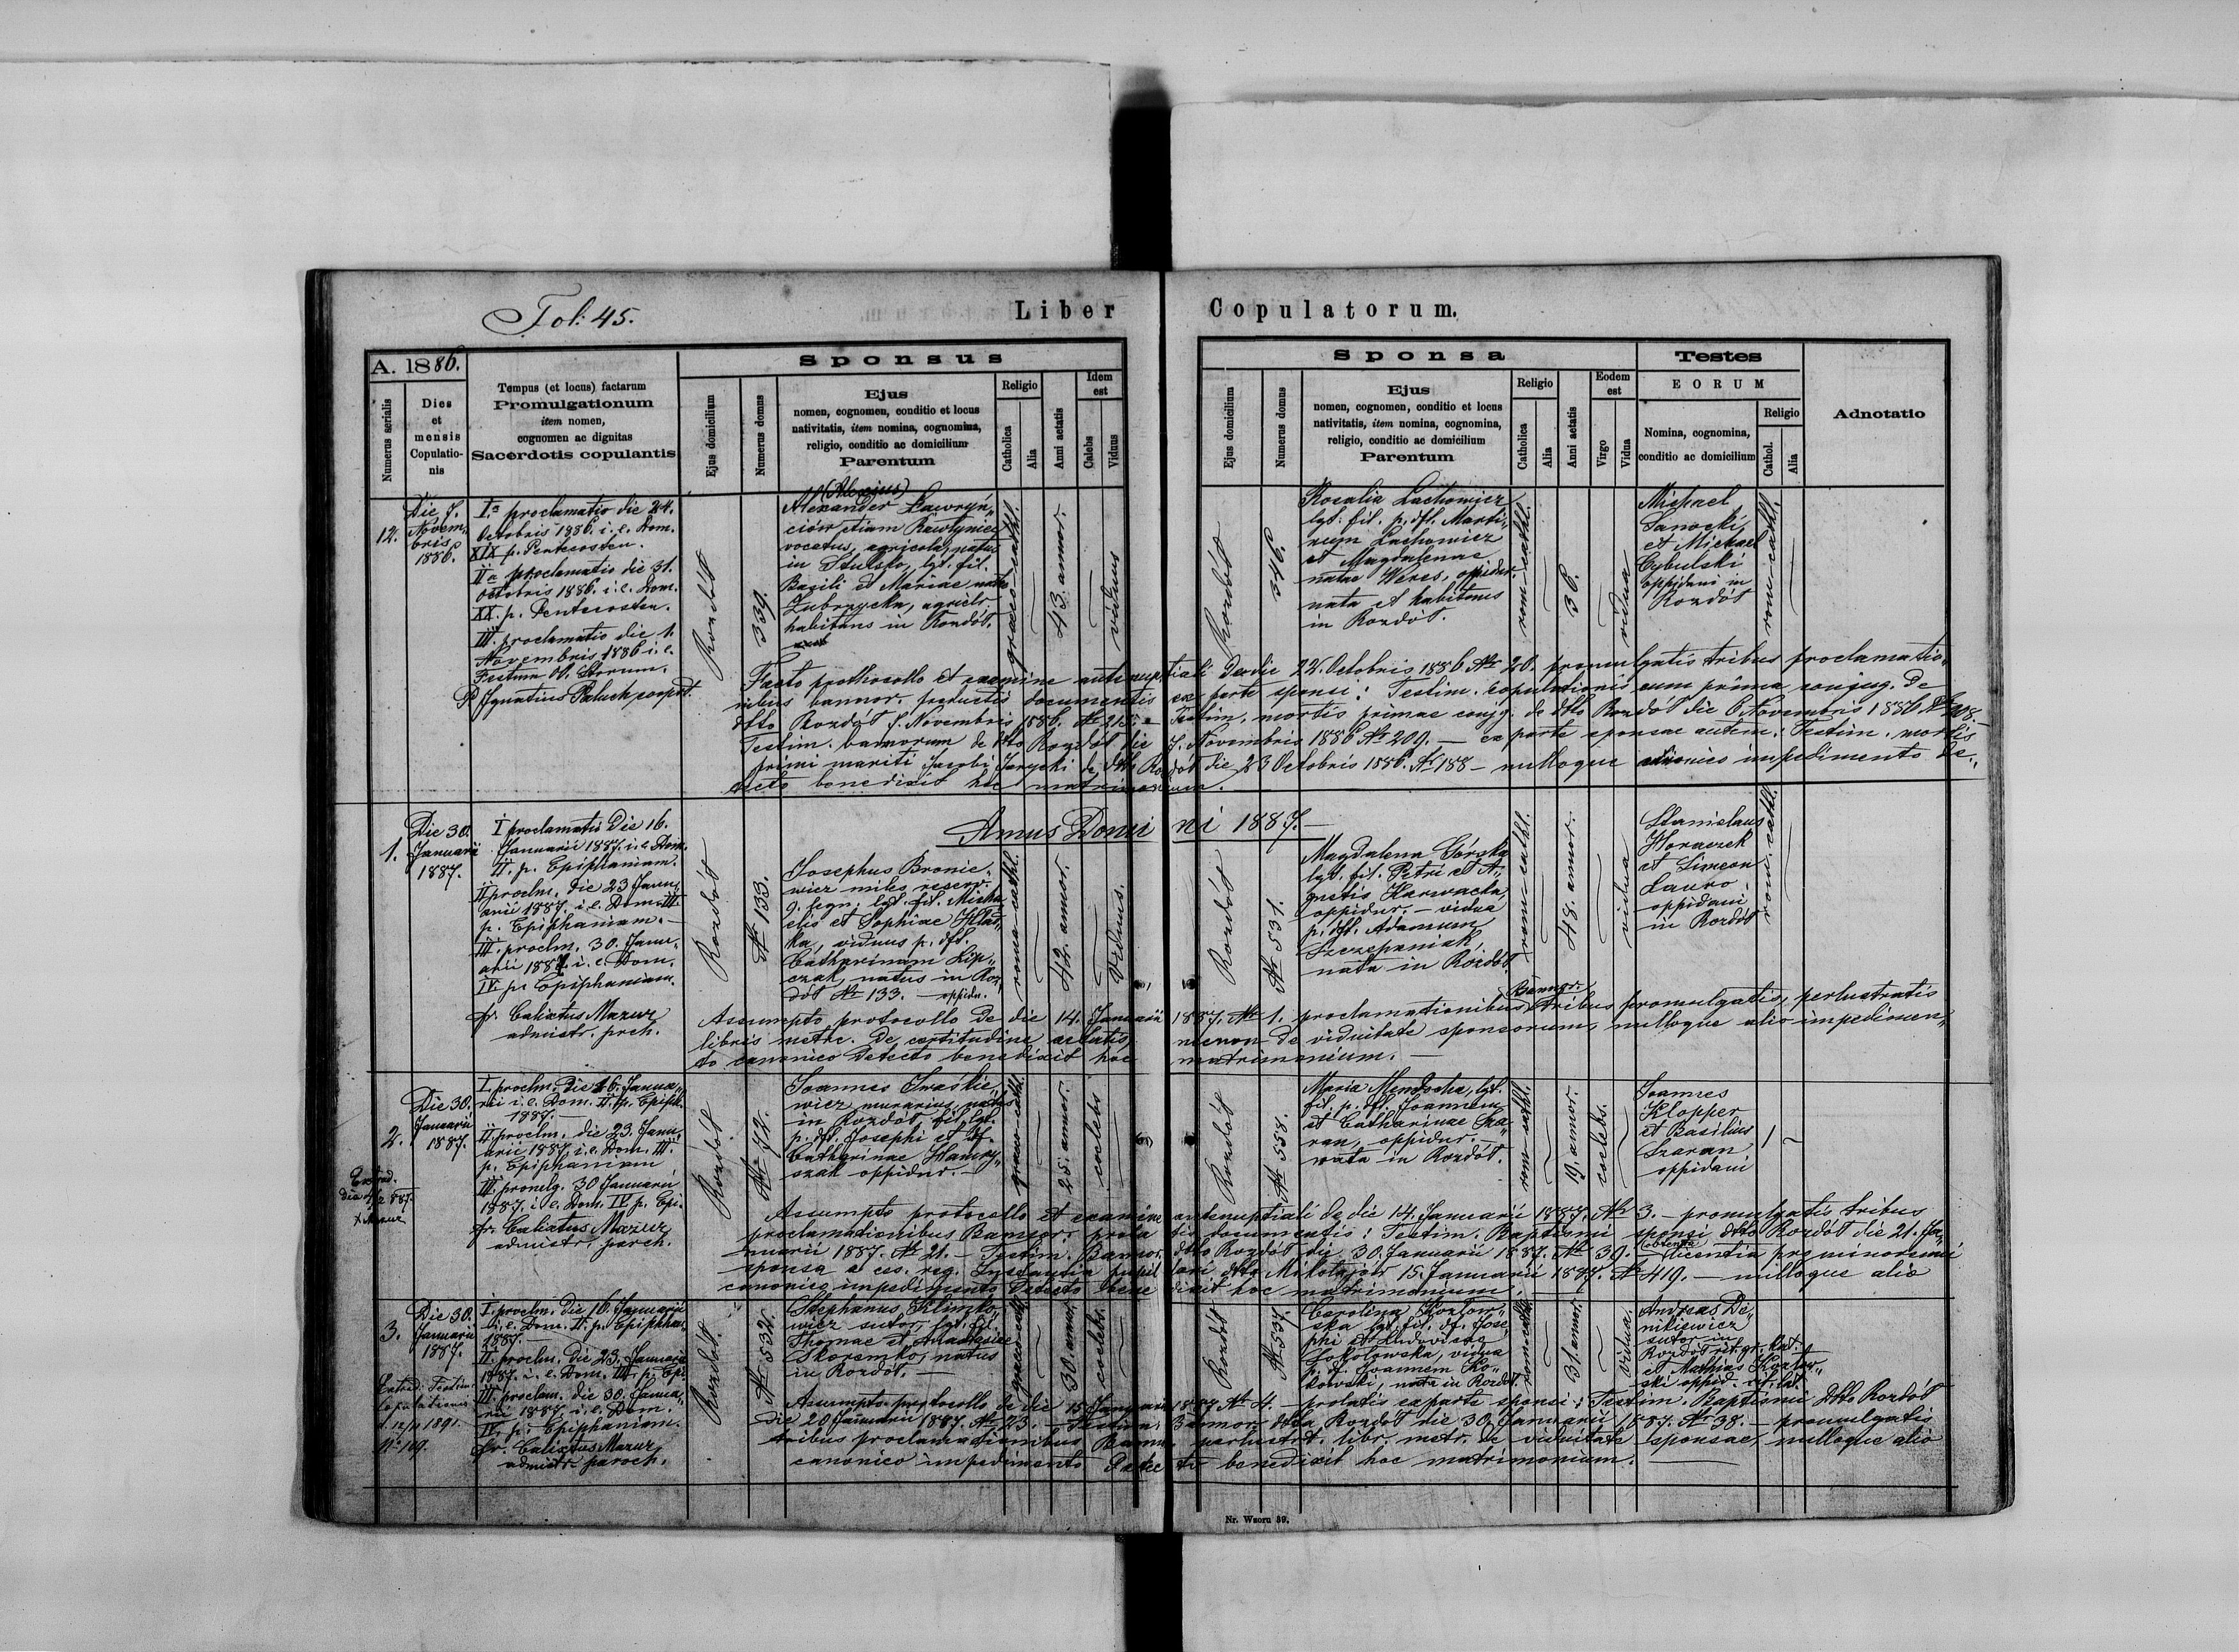 Fol: 45.
Liber Copulatorum.
A. 1886.
Numerus serialis
Dies
et
mensis
Copulatio-
nis
Tempus (et locus) factarum
Promulgationum
item nomen,
cognomen ac dignitas
Sacerdotis copulantis
Sponsus
Ejus domicilium
Numerus domus
Ejus
nomen, cognomen, conditio et locus
nativitatis, item nomina, cognomina,
religio, conditio ac domicilium
Parentum
Religio
Catholica
Alia
Anni aetatis
Idem
est
Caelebs
Viduus
Sponsa
Ejus domicilium
Numerus domus
Ejus
nomen, cognomen, conditio et locus
nativitatis, item nomina, cognomina,
religio, conditio ac domicilium
Parentum
Religio
Catholica
Alia
Anni aetatis
Eodem
est
Virgo
Vidua
Testes
EORUM
Nomina, cognomina,
conditio ac domicilium
Religio
Cathol.
Alia
Adnotatio
12.
Die 7.
Novem„
bris
1886.
Ia proclamatio die 24.
Octobris 1886. i. e. Dom.
XIX p. Pentecosten.
IIa proclamatio die 31.
octobris 1886. i. e. Dom.
XX. p. Pentecosten.
III. proclamatio die 1.
Novembris 1886 i. e.
Festum O. Storum.
P. Ignatius Paluch coop
Rozdół
339.
(Alexius)
Alexander Ławryn„
ciów etiam
vocatus, agricola, natus
in Stulsko, lgt. fil.
Basili et Mariae natae
Zubrzycka, agricolr.
habitans in Rozdół.
graeco-cathl.
43. annor.
viduus
Rozdół
346.
Rosalia Lachowicz
lgt. fil. p. dft. Marti„
num Lachowicz
et Magdalenae
natae Weres, oppidnr.
nata et habitans
in Rozdół.
rom-cathl.
36.
vidua
Michael
Sanocki
et Michael
Cybulski
oppidani in
Rozdół
rom-cathl.
Facto prothocollo et examine antenuptiali de die 22. Octobris 1886 No 20. promulgatis tribus proclamatio„
nibus bannor. productis documentis ex parte sponsi: Testim. copulationis cum prima conjug. de
dtto Rozdół 7. Novembris 1886. No 215. – Testim. mortis primae conjg. de dtto Rozdół die 6 Novembris 1886 No 208.
Testim. bannorum de dtto Rozdół die 7. Novembris 1886 No 209. – ex parte sponsae autem: Testim. mortis
primi mariti Jacobi Jarycki de dtto Rozdół die 23 Octobris 1886. No 188 – nulloque canonico impedimento de„
tecto benedixit hoc matrimonium.
Annus Domini 1887. –
1.
Die 30.
Januarii
1887.
I proclamatio Die 16.
Januarii 1887. i. e. Dom.
II. p. Epiphaniam.
II proclm. die 23 Janu„
arii 1887 i. e. Dom. III.
p. Epiphaniam. –
III. proclm. 30. Janu„
arii 1887. i. e. Dom.
IV. p. Epiphaniam.
fr. Calixtus Mazur
admistr. prch.
Rozdół
No 133.
Josephus Bronie„
wicz miles reserv.
9. legn: lgt. fil. Micha„
elis et Sophiae Hład„
ka, viduus p. dft.
Catharinam Lip„
czak, natus in Roz„
dół No 133. – oppidn.
roma-cathl.
42. annor.
viduus.
Rozdół
No 531.
Magdalena Górska
lgt. fil. Petri et A„
gnetis Harwacka,
oppidnr. – vidua
p. dft. Adamum
Szczepaniak,
nata in Rozdół.
rom-cathl.
48. annor.
vidua
Stanislaus
Horaczek
et Simeon
Lauro
oppidani
in Rozdół
rom-cathl.
Assumpto protocollo de die 14. Januarii 1887. No 1. proclamationibus Bannor. tribus promulgatis, perlustratis
libris metrc. de certitudine aetatis, necnon de viduitate sponsorum, nulloque alio impedimen„
to canonico detecto benedixit hoc matrimonium. –
2.
Die 30.
Januarii
1887.
Extrad.
die 4/2 887.
Mazur
I. proclm. Die 16. Janua„
rii i. e. Dom. II. p. Epiph.
1887. –
II. proclm. die 23. Janu„
arii 1887. i. e. Dom. III.
p. Epiphaniam
III. promlg. 30 Januarii
1887. i. e. Dom. IV p. Epi„
fr. Calixtus Mazur
admistr. parch.
Rozdół
No 42.
Joannes Iwaśkie„
wicz murarius, natus
in Rozdół fil. lgt.
p. dft. Josephi et dft.
Catharinae Hawry„
szak oppidnr. –
graeco-cathl.
25. annor.
coelebs
Rozdół
No 558.
Maria Mendocha, lgt.
fil. p. dft. Joannem
et Catharinae Sza„
ran, oppidnr. –
nata in Rozdół.
rom-cathl.
19. annor.
coelebs.
Joannes
Klopper
et Basilius
Szaran
oppidani
Assumpto protocollo et examine antenuptiali de die 14. Januarii 1887. No 3. – promulgatis tribus
proclamationibus Bannor. productis documentis: Testim. Baptismi sponsi dtto Rozdół die 21. Ja„
nuarii 1887. No 21. – Testim. Bannor. dtto Rozdół die 30. Januarii 1887. No 39. – (obtenta) licentia pro minorenni
sponsa a ces. reg. Instantia pupillari dtto Mikołajów 15. Januarii 1887. No 419. – nulloque alio
canonico impedimento detecto benedixit hoc matrimonium.
3.
Die 30.
Januarii
1887.
Extrad. Testim.
Copulationis
1891.
No 109.
I. proclm. die 16. Januarii
i. e. Dom. II. p. Epipha„
1887. –
II. proclm. Die 23. Januarii
1887. i. e. Dom. III. p. Epi.
III proclam. die 30. Janua„
rii 1887 i. e. Dom.
IV. p. Epiphaniam.
fr. Calixtus Mazur
admistr. paroch.
Rozdół.
No 532.
Stephanus Klimko„
wicz sutor, lgt. fil.
Thomae et Anastasiae
Skoremko, natus
in Rozdół. –
graeco-cathl.
30. annor.
coelebs.
Rozdół
No 537.
Carolina Kozłow„
ska lgt. fil. dft. Jose„
phi et Ludovicae
Sokołowska, vidua
p. d. Joannem Ko„
kowski – nata in Rozdół.
rom-cathl.
31. annor.
vidua.
Andreas De„
nikiewicz
sutor in
Rozdół rit. gr. kat.
et Mathias Kozłow„
ski oppid. rit. lat.
Assumpto protocollo de die 15 Januarii 1887 No 4. – prolatis ex parte sponsi: Testim. Baptismi dtto Rozdół
die 20 Januarii 1887. No 23. – Testim. Bannor. dtto Rozdół die 30 Januarii 1887. No 38. – promulgatis
tribus proclamationibus Bann. perlustrt. libr. metr. de viduitate sponsae, nulloque alio
canonico impedimento detecto benedixit hoc matrimonium.
Nr. Wzoru 39.